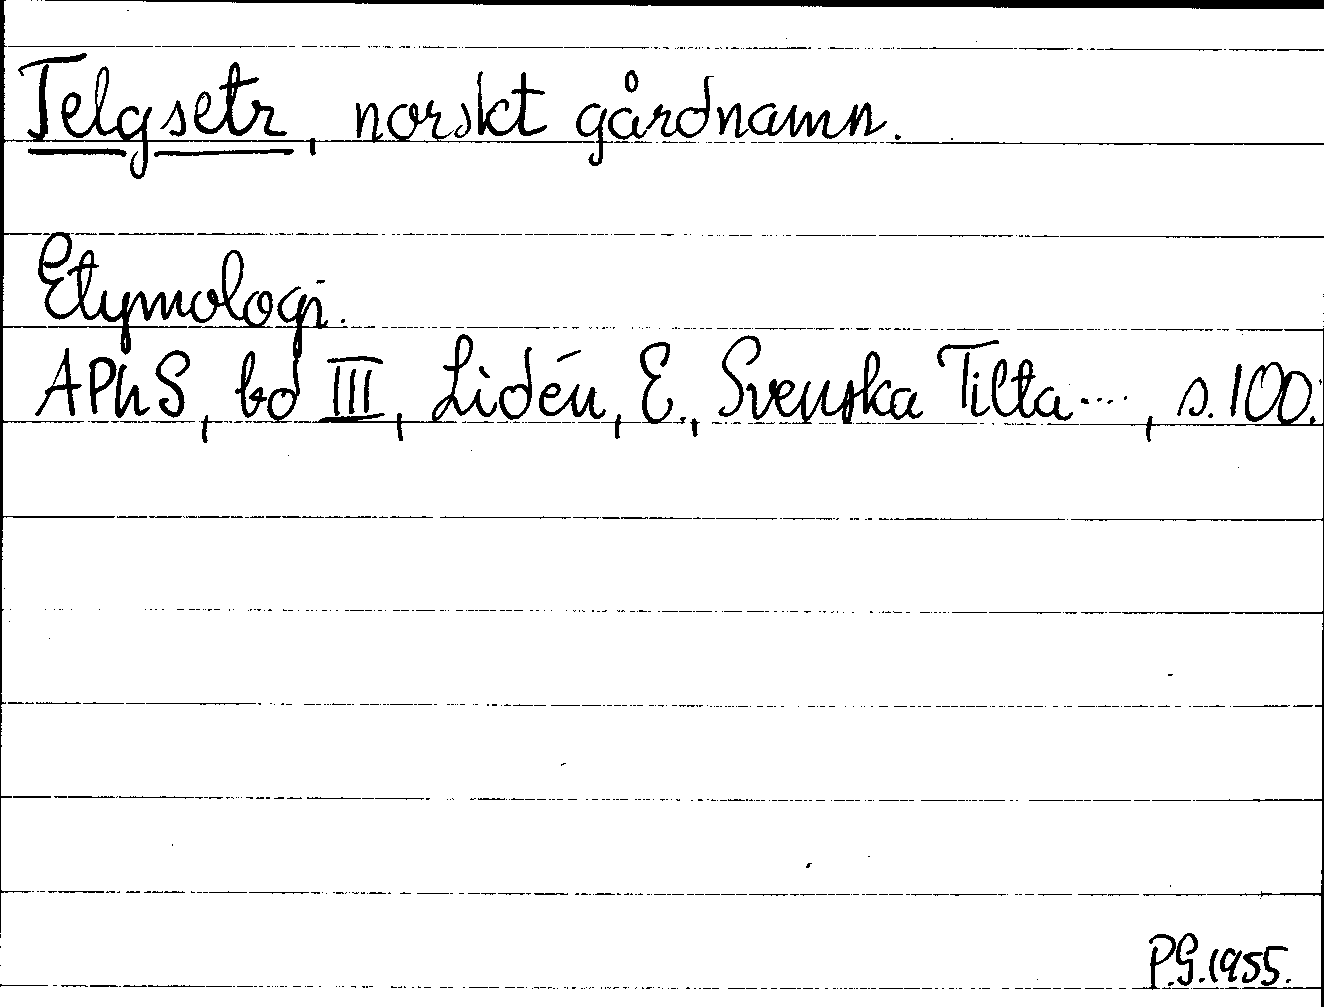 Telgsetr, norskt gårdnamn.
Etymologi.
APhS, bd III, Lidén, E., Svenska Tilta...., s. 100.
P.G. 1955.